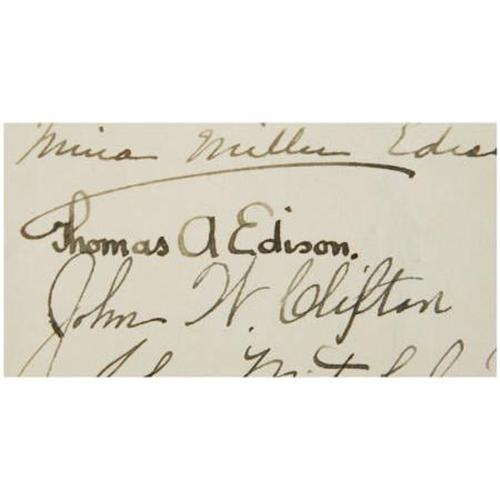 Mina Miller Edis
Thomas A Edison.
John W. Clifton